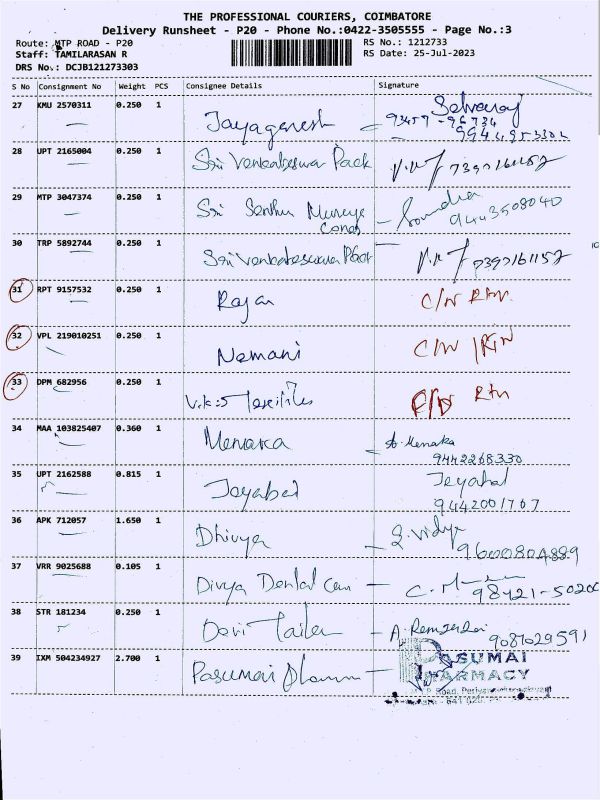 THE PROFESSIONAL COURIERS, COIMBATORE
Delivery Runsheet - P20 - Phone No.:0422-3505555 - Page No.:3
Route: MTP ROAD - P20 RS No.: 1212733
Staff: TAMILARASAN R RS Date: 25-Jul-2023
DRS No.: DCJB121273303
S No Consignment No Weight PCS Consignee Details Signature
27 KMU 2570311 0.250 1 Jayaganesh Selvaraj
28 UPT 2165004 0.250 1 Sri Venkateswar Pack
29 MTP 3047374 0.250 1 Sri Senthur 9443508040
30 TRP 5892744 0.250 1 Sri Venkateswara
31 RPT 9157532 0.250 1 Rajan C/N Rtn
32 VPL 219010251 0.250 1 Nemani C/N Rtn
33 DPM 682956 0.250 1 Rtn
34 MAA 103825407 0.360 1 Menaka A. Menaka
9442268330
35 UPT 2162588 0.815 1 Jeyabal
9442001767
36 APK 712057 1.650 1 Dhivya S. Vidya
9600804889
37 VRR 9025688 0.105 1 Divya Dental
38 STR 181234 0.250 1 Devi Tailor
9087029591
39 IXM 504234927 2.700 1 Pasumai PASUMAI
PHARMACY